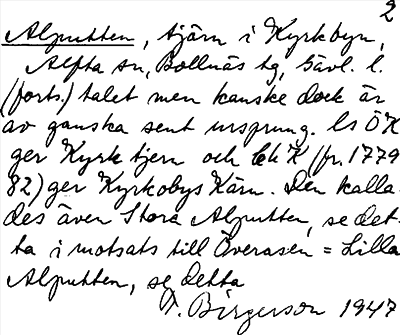 2
Alputten, tjärn i Kyrkobyn,
Alfta sn, Bollnäs tg, Gävl. l.
(forts.) talet men kanske dock är
av ganska sent ursprung. Ls ÖK
ger Kyrk tjern och K (fr. 1779
82) ger Kyrkobys Kärn. Den kalla-
des även Stora Alputten, se det-
ta i motsats till Överasen = Lilla
Alputten, se detta
Birgerson 1947